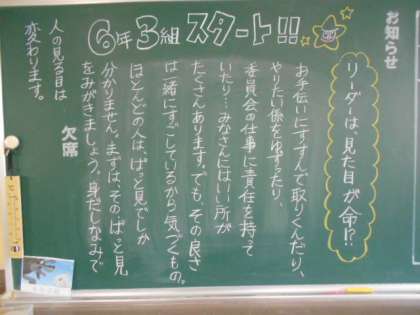 お知らせ
6年3組 スタート!!
リーダーは、見た目が命!?
お手伝いにすすんで取りくんだり、
やりたい係をゆずったり、
委員会の仕事に責任を持って
いたり…みなさんにはいい所が
たくさんあります。でも、その良さ
は一緒にすごしているから気づくもの。
ほとんどの人は、ぱっと見でしか
分かりません。まずは、そのぱっと見
をみがきましょう。身だしなみで
人の見る目は
変わります。
欠席